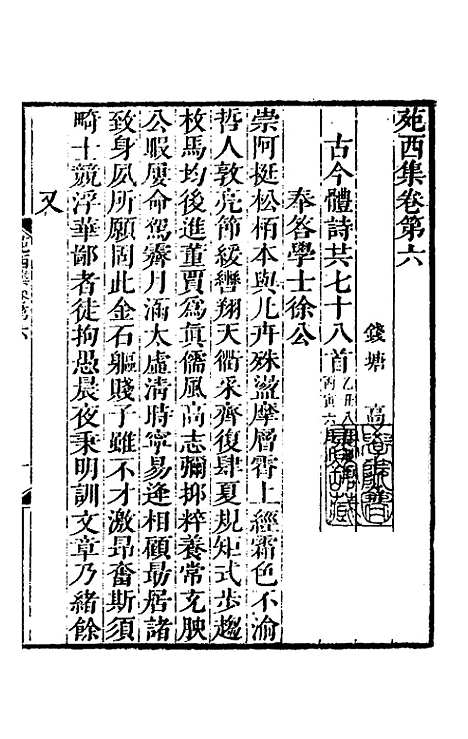 苑西集卷第六
錢塘 高
古今體詩共七十八首
奉答學士徐公
崇阿挺松柏本與凡卉殊盤摩層霄上經霜色不渝
哲人敦亮節緩轡翔天衢采齊復肆夏規矩式步趨
枚馬均後進董賈爲眞儒風高志彌抑粹養常充腴
公暇屢命駕霽月滿太虛清時寧易逢相顧曷居諸
致身夙所願固此金石軀賤子雖不才激昂奮斯須
畸士競浮華鄙者徒拘愚晨夜秉明訓文章乃緒餘
又